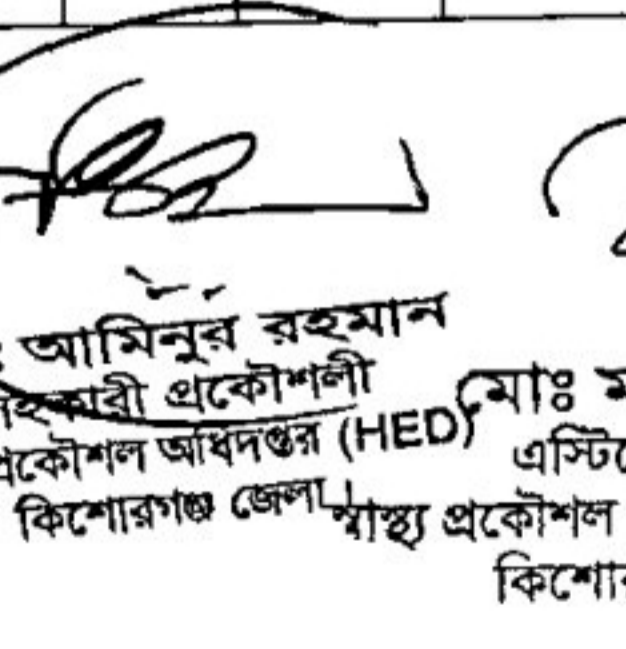 : আমিনুর রহমান
সহকারী প্রকৌশলী
প্রকৌশল অধিদপ্তর (HED)
কিশোরগঞ্জ জেলা।
মোঃ
স্বাস্থ্য প্রকৌশল